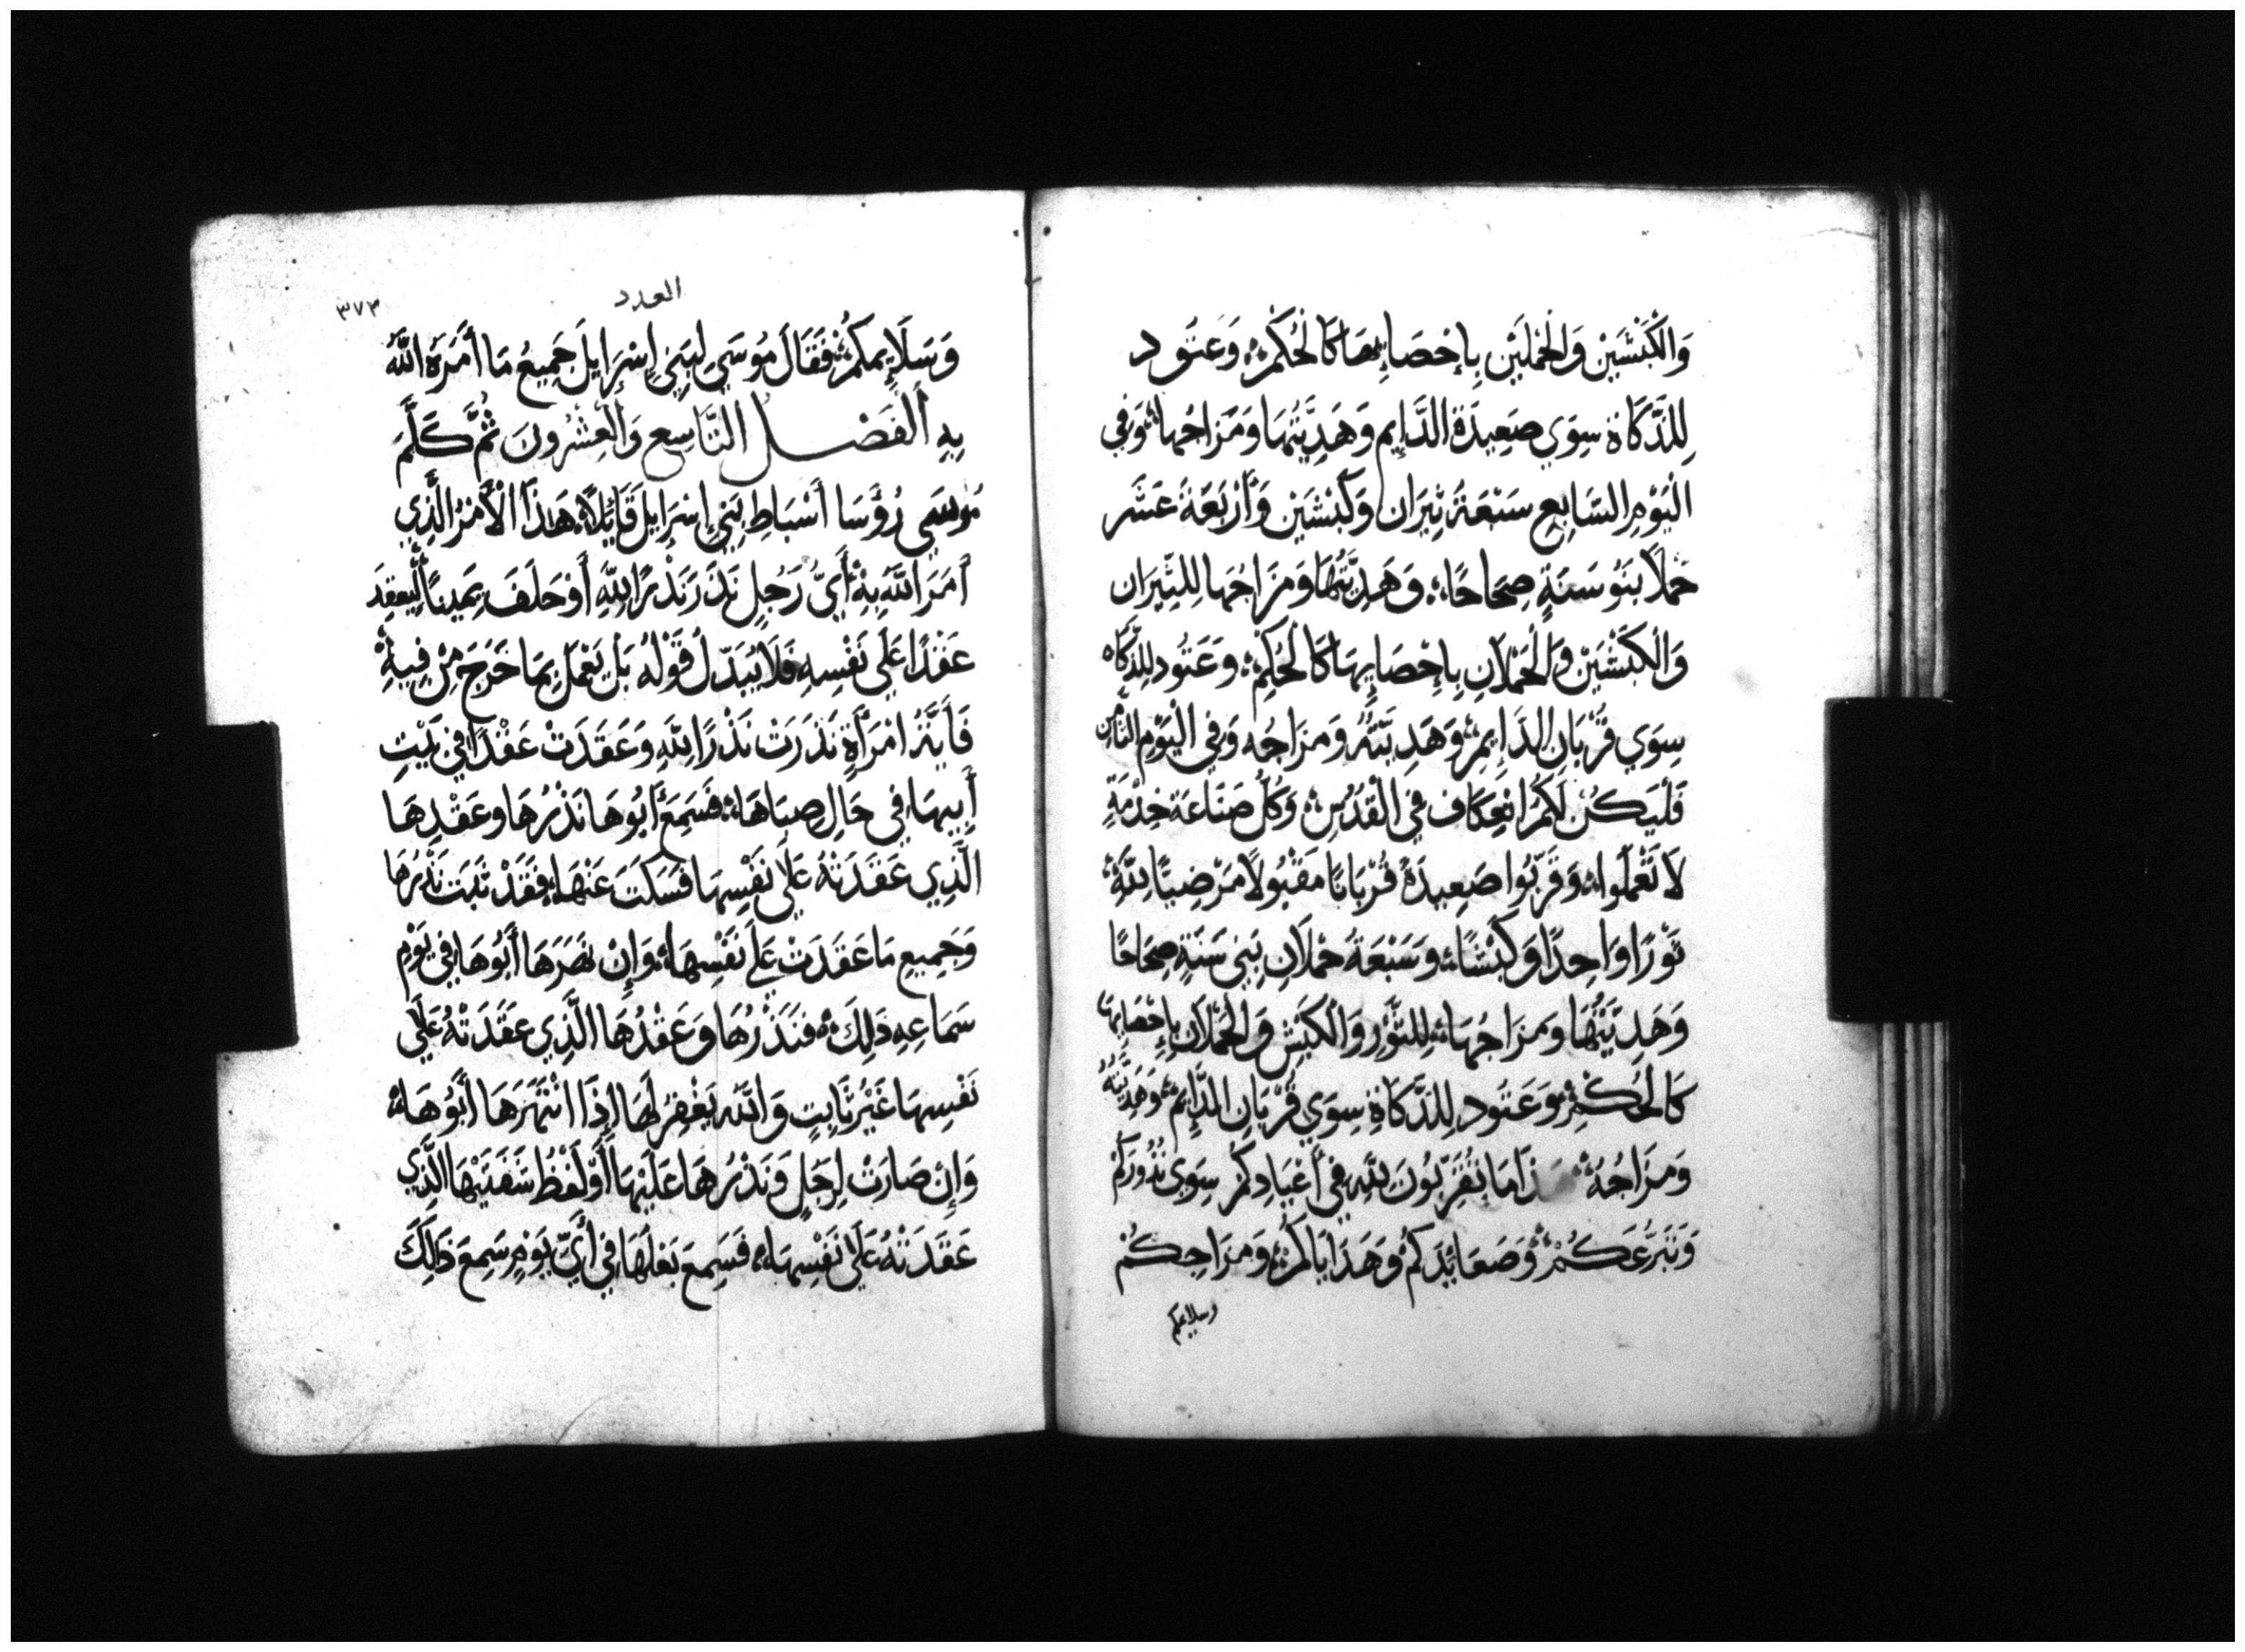 وَالْكَبْشَيْنِ وَالْحَمَلَيْنِ بِإِحْصَائِهَا كَالْحُكْمِ وَعَتُود
لِلذَّكَاةِ سِوَي صَعِيدَةِ الدَّايِمِ وَهَدِيَّتُهَا وَمَزَاجُهَا وَفِي
الْيَوْمِ السَّابِعِ سَبْعَةُ ثِيَرَان وَكَبْشَيْنِ وَأَرْبَعَةَ عَشَر
حَمَلًا بَنُو سَنَةٍ صِحَاحًا وَهَدِيَّتُهَا وَمَزَاجُهَا لِلثِّيَرَانِ
وَالْكَبْشَيْنِ وَالْحَمْلَانِ بِإِحْصَايِهَا كَالْحُكْمِ وَعَتُود لِلذَّكَاه
سِوَي قُرْبَانِ الدَّايِمِ وَهَدِيَّتُهُ وَمَزَاجُه وَفِي الْيَوْمِ الثَّامِن
فَلْيَكُنْ لَكُمُ انْعِكَاف فِي الْقُدْسِ وَكُلُّ صَنَاعَة خِدْمَةٍ
لَا تَعْمَلُوا وَقَرِّبُوا صَعِيدَةً قُرْبَانًا مَقْبُولًا مَرْضِيًّا لِلَّهِ
ثَوْرًا وَاحِدًا وَكَبْشًا وَسَبْعَةُ حُمْلَانِ بَنِي سَنَةٍ صِحَاحًا
وَهَدِيَّتُهَا وَمَزَاجُهَا لِلثَّوْرِ وَالْكَبْشِ وَالْحُمْلَانِ بِإِحْصَايِهَا
كَالْحُكْمِ وَعَتُود لِلذَّكَاةِ سِوَي قُرْبَانِ الدَّايِمِ وَهَدِيَّتُهُ
وَمَزَاجُهُ ذَا مَا تُقَرِّبُونَ لِلَّهِ فِي أَعْيَادِكُمْ سِوَى نُذُورِكُمْ
وَتَبَرُّعِكُمْ وَصَعَايِدَكُمْ وَهَدَايَاكُمْ وَمِزَاجِكُمْ
وسلايمكم
العدد
٣٧٣
وَسَلَايِمِكُمْ فَقَالَ مُوسَي لِبَنِي إِسْرَايِلَ جَمِيعُ مَا أَمَرَهُ اللَّهُ
بِهِ الْفَصْل التَّاسِعِ وَالْعِشْرُونَ ثُمَّ كَلَّمَ
مُوسَي رُؤَسَا أَسْبَاطِ بَنِي إِسْرَايِلَ قَائِلًا هَذَا الْأَمْرُ الَّذِي
أَمَرَ اللَّهُ بِهِ أَيُّ رَجُلٍ نَذَرَ نَذْرًا لِلَّهِ أَوْ حَلَفَ يَمِينًا لِيَعْقِدَ
عَقْدًا عَلَي نَفْسِهِ فَلَا يُبَدِّلُ قَوْلَهُ بَلْ يَعْمَلُ بِمَا خَرَجَ مِنْ فِيهِ
فَأَيَّةُ امْرَأَةٍ نَذَرَتْ نَذْرًا لِلَّهِ وَعَقَدَتْ عَقْدًا فِي بَيْتِ
أَبِيهَا فِي حَالِ صِبَاهَا فَسَمِعَ أَبُوهَا نَذْرُهَا وَعَقْدِهَا
الَّذِي عَقَدَتْهُ عَلَي نَفْسِهَا فَسَكَتَ عَنْهَا فَقَدْ ثَبَتَ نَذْرُهَا
وَجَمِيعِ مَا عَقَدَتْ عَلَي نَفْسِهَا وَإِنْ نَهَرَهَا أَبُوهَا فِي يَوْمِ
سَمَاعِهِ ذَلِكَ فَنَذْرُهَا وَعَقْدُهَا الَّذِي عَقَدَتْهُ عَلَي
نَفْسِهَا غَيْرُ ثَابِتٍ وَاللَّه يَغْفِرُ لَهَا إِذَا انْتَهَرَهَا أَبُوهَا
وَإِنْ صَارَتْ لِرَجُلٍ وَنَذْرُهَا عَلَيْهَا أَوْ لَفْظُ شَفَتَيْهَا الَّذِي
عَقَدَتْهُ عَلَي نَفْسِهَا فَسَمِعَ بَعْلُهَا فِي أَيِّ يَوْمٍ سَمِعَ ذَلِكَ